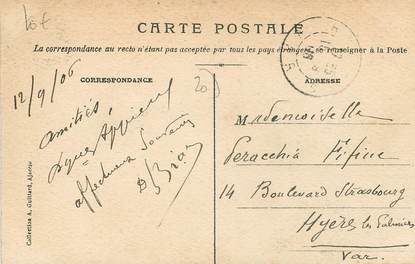 CARTE POSTALE
La correspondance au recto n'étant pas acceptée par tous les pays étrangers, se renseigner à la Poste
CORRESPONDANCE
ADRESSE
12/9/06
amitiés
affectueux Souvenir
Mademoiselle
Peracchia Fifine
14 Boulevard Strasbourg
Hyères les Palmiers
Var.
Collection A. Guittard, Algérie